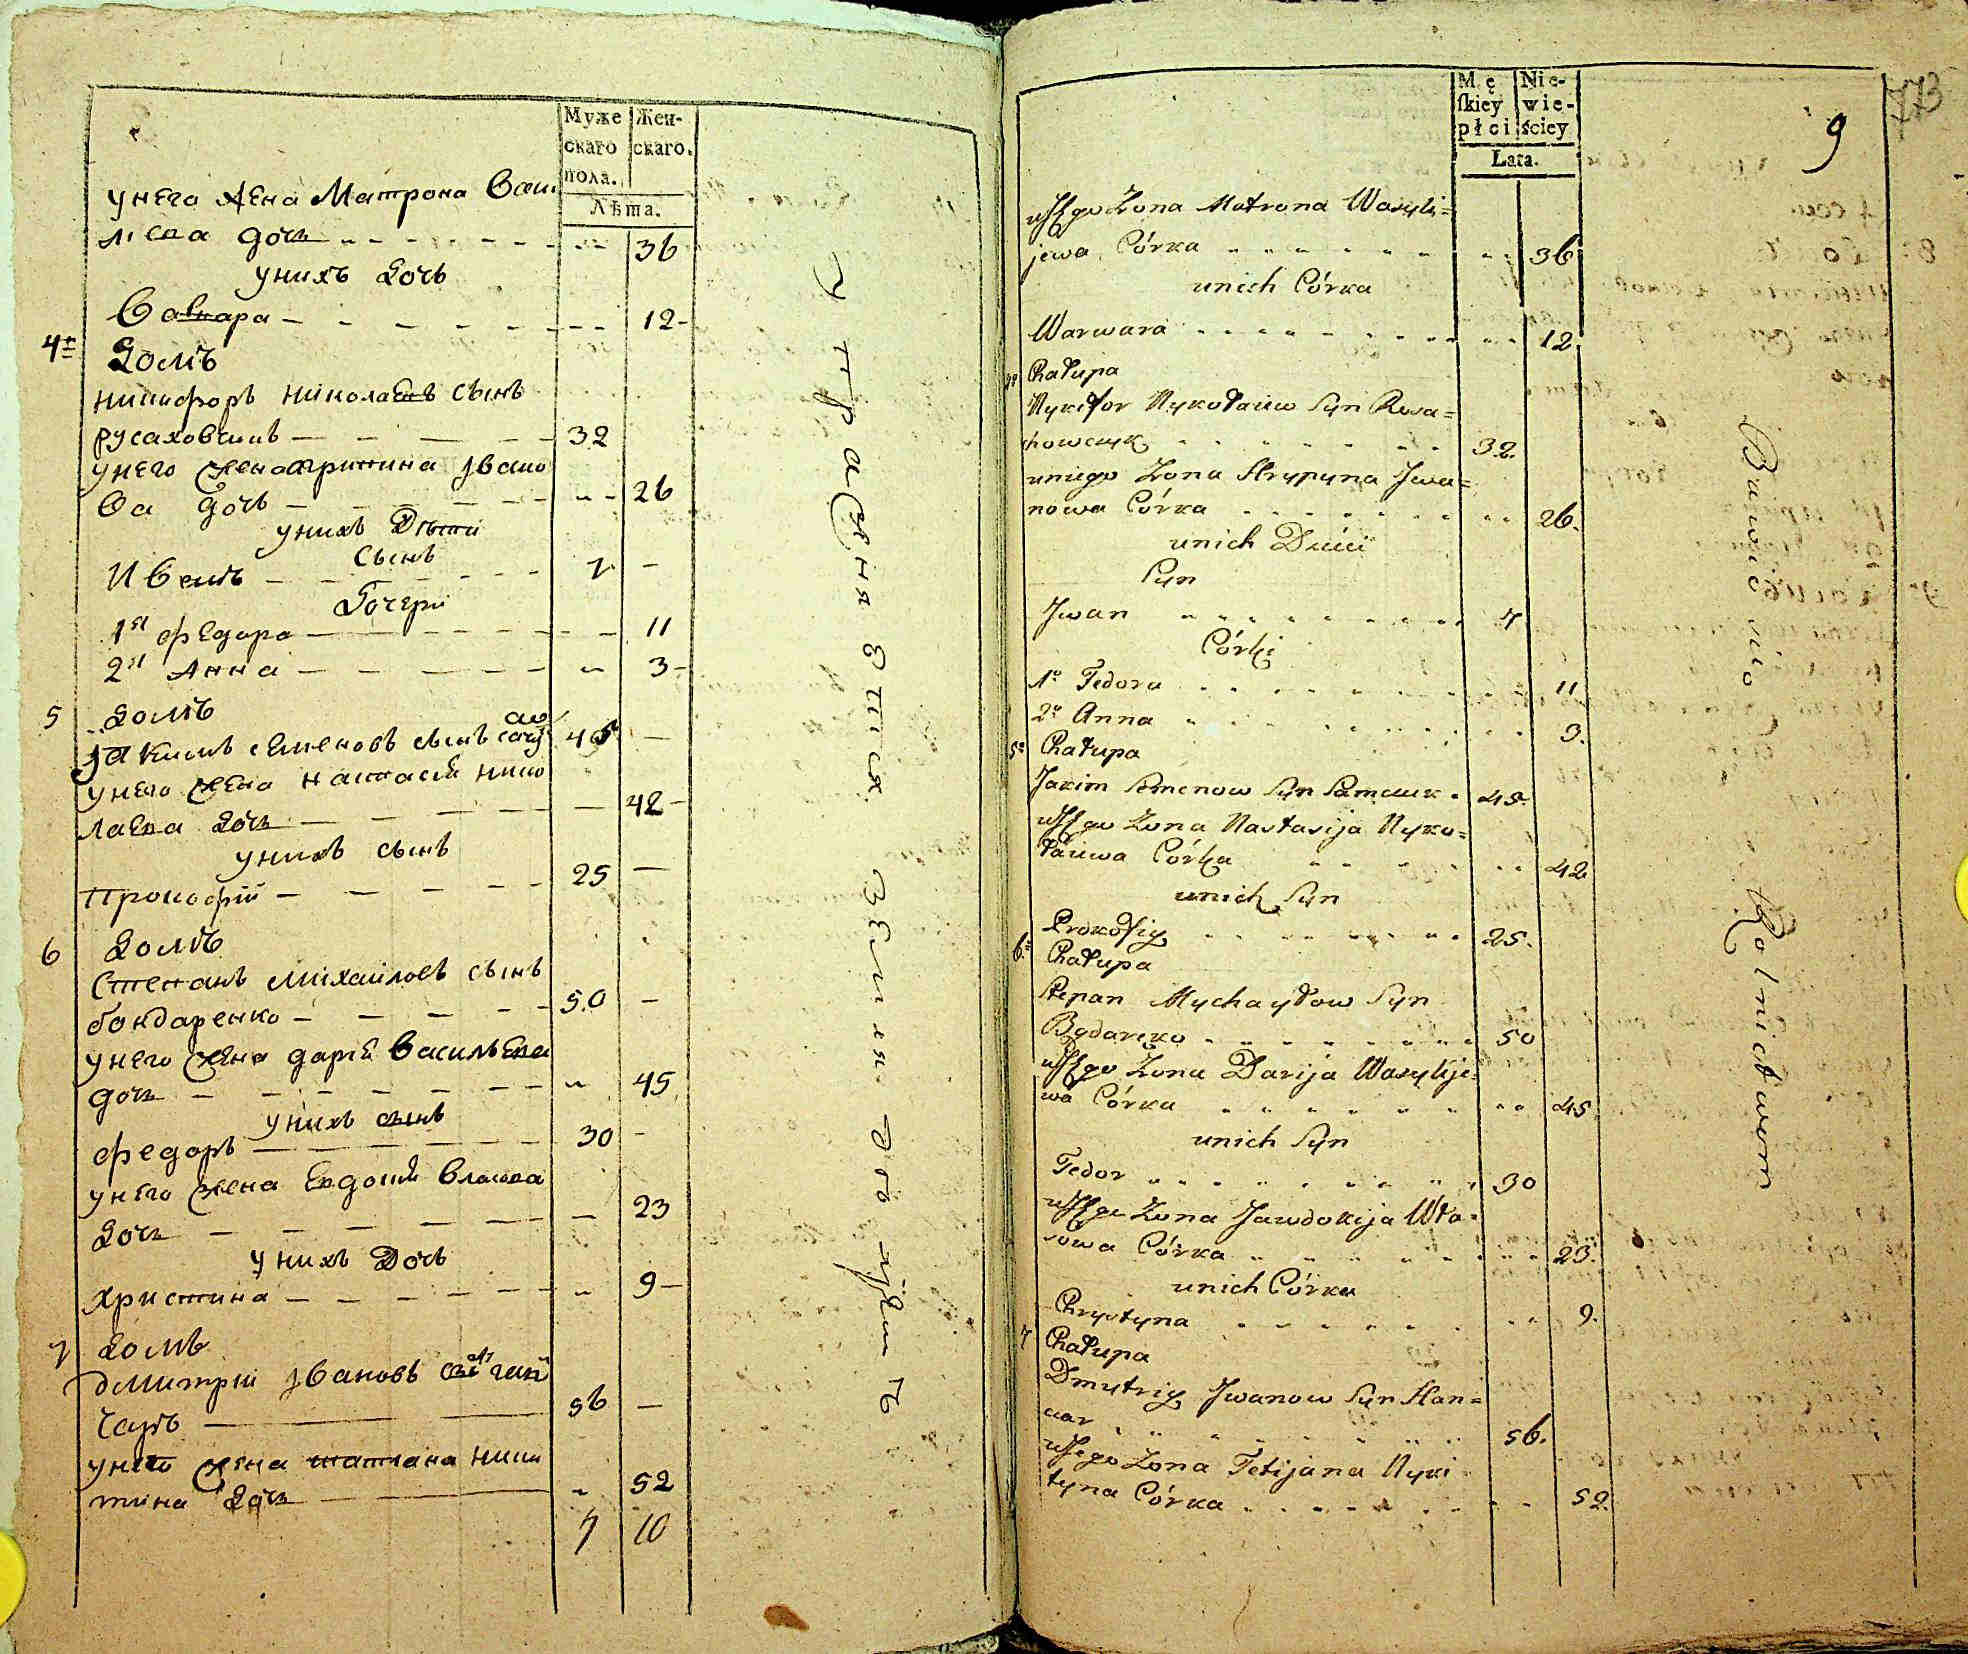 Муже
скаго
пола.
Жен-
скаго.
Лѣта.
унего жена Матрона Васи
лієва дочь 36
унихъ дочь
Варвара 12
4я
домъ
никифоръ николаевъ сынъ
русаховчикъ 32
унего жена Агрипина Ивано
ва дочь 26
унихъ Дѣти
сынъ
Иванъ 7
дочери
1я федора 11
2я Анна 3
5 домъ
Яакимъ семеновъ сынъ 45
унего жена настасія нико
лаева дочь 42
унихъ сынъ
прокофій 25
6 домъ
Степанъ михайловъ сынъ
бондаренко 50
унего жена дарія васильева
дочь 45
унихъ сынъ
федоръ 30
унего жена Евдокия власова
дочь 23
унихъ Дочь
христина 9
7 домъ
дмитрій Ивановъ ган
чаръ 56
унего жена татиана ники
тина дочь 52
7 10
Упражняется земледѣліемъ
Mę
ſkiey
płci
Nie-
wie-
ściey
Lata.
9
773
u Jego Żona Matrona Wasyli=
jewa Córka 36
unich Córka
Warwara 12
4o Chałupa
Nykifor Nykołaiiw Syn Rusa=
howczyk 32
uniego Żona Hrypyna Jwa=
nowa Córka 26.
unich Dzieci
Syn
Jwan 7
Córki
1o Fedora 11
2o Anna 3.
5o Chałupa
Jakim Semenow Syn Samczuk 45
u Jego Żona Nastasija Nyko=
łaiiwa Córka 42
unich Syn
Prokofiy 25.
6o Chałupa
Stepan Mychayłow Syn
Bądareko 50
u Jego Żona Darija Wasylije=
wa Córka 45
unich Syn
Fedor 30
u Jego Żona Jawdokija Wła=
sowa Córka 23
unich Córka
Chrystyna 9.
7 Chałupa
Dmytriy Jwanow Syn Han=
czar 56.
u Jego Żona Tetijana Nyki
tyna Córka 52.
Bawić się Rolnictwem